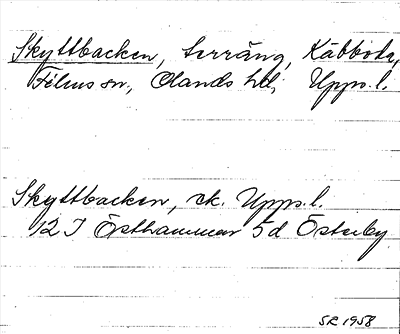 Skyttbacken, terräng, Käbboda,
Films sn, Olands hd, Upps.l.
Skyttbacken, ek. Upps.l.
12 I Östhammar 5d Österby
SR 1958